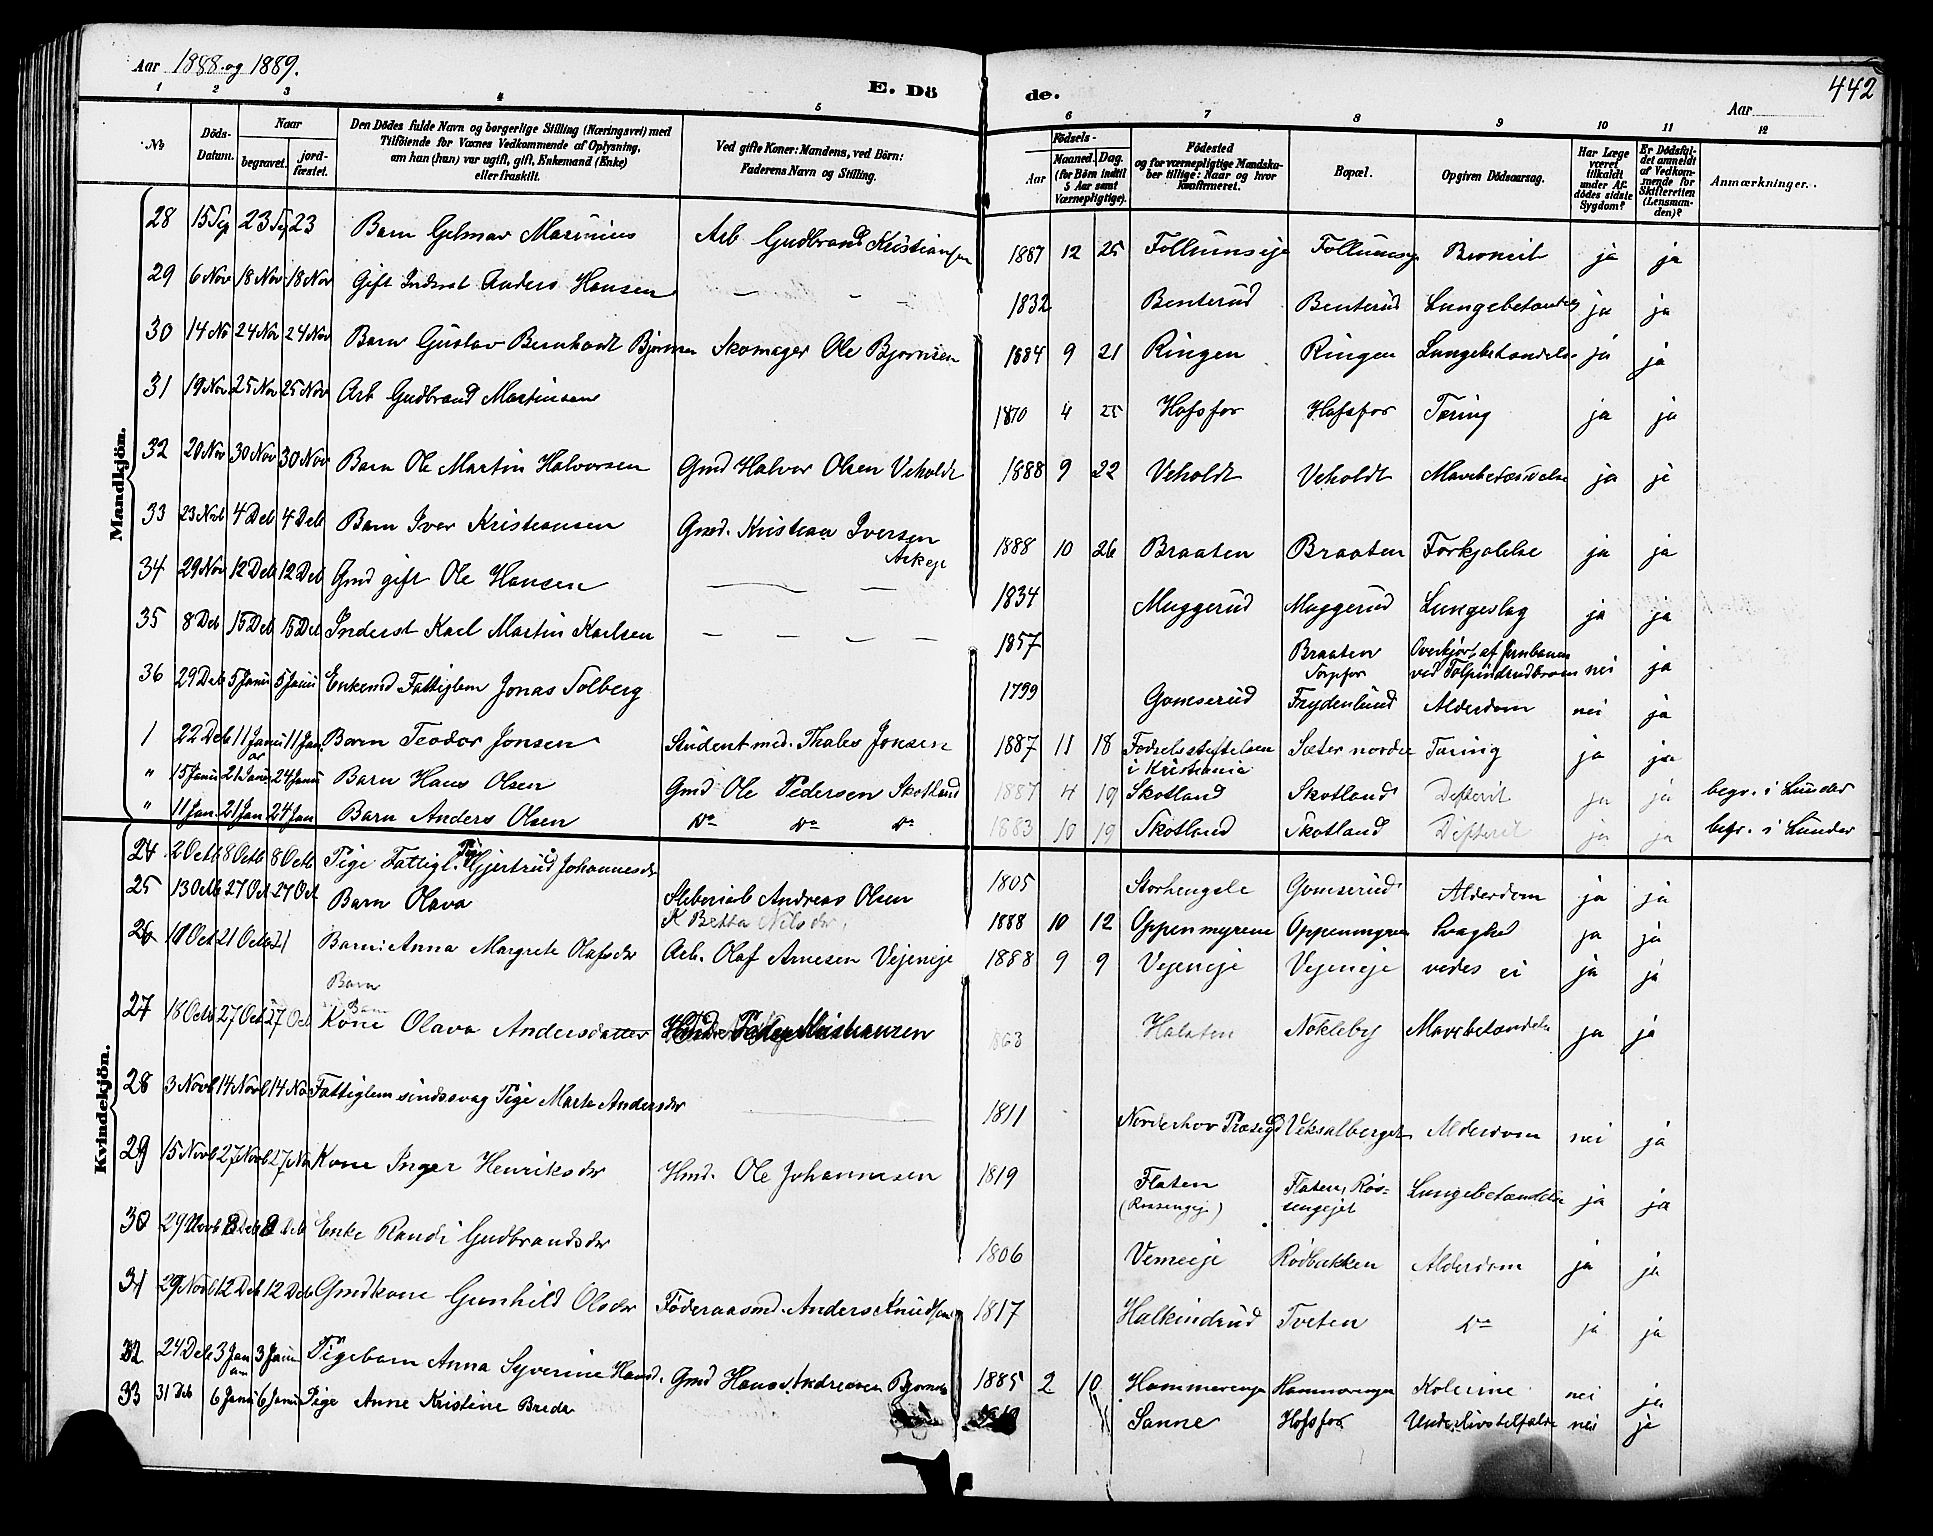 Aar 1888 og 1889.
E. Döde.
Aar
442
1 2 3 4 5 6 7 8 9 10 11 12
No
Döds-Datum.
Naar
begravet.
jord-fæstet.
Den Dödes fulde Navn og borgerlige Stilling (Næringsvei) med Tilföiende for Voxnes Vedkommende af Oplysning, om han (hun) var ugift, gift, Enkemand (Enke) eller fraskilt.
Ved gifte Koner: Mandens, ved Börn: Faderens Navn og Stilling.
Födsels-
Aar
Maaned. Dag.
(for Börn indtil 5 Aar samt Værnepligtige).
Födested og for værnepligtige Mandskaber tillige: Naar og hvor konfirmeret.
Bopæl.
Opgiven Dödsaarsag.
Har Læge været tilkaldt under Afdödes sidste Sygdom?
Er Dödsfaldet anmeldt af Vedkommende for Skifteretten (Lensmanden)?
Anmærkninger.
Mandkjön.
28 15 Sep 23 Sep 23 Barn Gilmar Marinius Arb Gudbrand Kristiansen 1887 12 25 Follumseje Follumseje Bronkit ja ja
29 6 Nov 18 Nov 18 Nov Gift Inderst Anders Hansen — — — 1832 Benterud Benterud Lungebetændels ja ja
30 14 No 24 Nov 24 Nov Barn Gustav Bernhardt Bjørnsen Skomager Ole Bjørnsen 1884 9 21 Ringen Ringen Lungebetændelse ja ja
31 19 Nov 25 Nov 25 Nov Arb Gudbrand Martinsen 1870 4 25 Hofsfos Hofsfos Tæring ja ja
32 20 Nov 30 Nov 30 Nov Barn Ole Martin Halvorsen Gmd Halvor Olsen Veholdt 1888 9 22 Veholdt Veholdt Mavebetændelse ja ja
33 23 Novb 4 Deb 4 Deb Barn Iver Kristiansen Gmd. Kristian Iversen Askeje 1888 10 26 Braaten Braaten Forkjølelse ja ja
34 29 Nov 12 Deb 12 Deb Gmd gift Ole Hansen — — — 1834 Muggerud Muggerud Lungeslag ja ja
35 8 Deb 15 Deb 15 Deb Inderst Karl Martin Karlsen — — — — 1857 Braaten Torpfos Overkjørt af Jernbanen ved Tolpindrudbroen nei ja
36 29 Deb 5 Janu 5 Janu Enkemd Fattiglem Jonas Solberg 1799 Gomserud Frydenlund Alderdom nei ja
1 22 Deb 11 Januar 11 Jan Barn Teodor Jonsen Student med. Thales Jonsen 1887 11 18 Fødselsstiftelsen i Kristiania Sæter nordre Tæring ja ja
" 15 Janu 21 Janu 24 Janu Barn Hans Olsen Gmd Ole Pedersen Skotland 1887 4 19 Skotland Skotland Defterit ja ja begr. i Lunder
" 11 Jan 21 Jan 24 Jan Barn Anders Olsen Do Do Do 1883 10 19 Skotland Skotland Difterit ja ja begr. i Lunder
Kvindekjön.
24 2 Octb 8 Octb 8 Octb Pige Fattigl. Pige Gjertrud Johannesdr 1805 Storhengsle Gomserud Alderdom ja ja
25 13 Octb 27 Oct 27 Oct Barn Olava Sleberiarb Andreas Olsen K Betta Nilsdr. 1888 10 12 Oppenmyrene Oppenmyren Svaghed ja ja
26 10 Oct 21 Octb 21 Barn: Anna Margrete Olafsdr Arb. Olaf Arnesen Vejeneje 1888 9 9 Vejeneje Vejeneje vedes ei ja ja
Barn
Barn
27 18 Octb 27 Oct 27 Oct Kone Olava Andersdatter Kristiansen 1863 Nokleby Mavebetændelse ja ja
28 3 Novb 14 Novb 14 Nov Fattiglem sindssvag Pige Marte Andersdr 1811 Norderhov Præstgd Veksalberget Alderdom nei ja
29 15 Novb 27 Novb 27 Nov Kone Inger Henriksdr Hmd. Ole Johannesen 1819 Flaten (Røssengeje) Flaten, Røssengejet Lungebetændelse ja ja
30 29 Novb 8 Deb 8 Deb Enke Randi Gudbrandsdr 1806 Vemeeje Rødbækken Alderdom ja ja
31 29 Novb 12 Deb 12 Deb Gmdkone Gunhild Olsdr Føderaadsmd. Anders Knudsen 1817 Halkindrud Tveten Do ja ja
32 24 Deb 3 Jan 3 Janu Pigebarn Anna Syverine Hansd. Gmd Hans Andreasen Bjørneb 1885 2 10 Hammerenga Hammerengen Kolerine nei ja
33 31 Deb 6 Janu 6 Janu Pige Anne Kristine Breda Sanne Hofsfos Underlivstilfælde nei ja